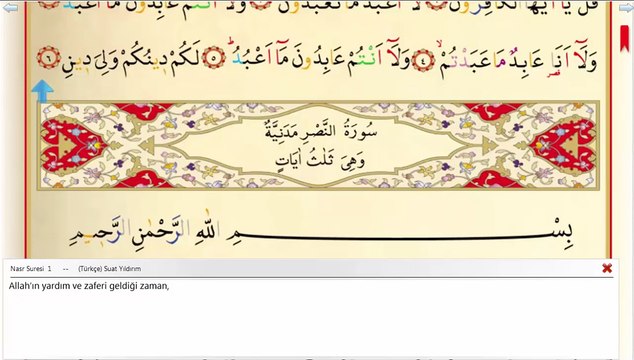 قُلْ يَٓا اَيُّهَا الْكَافِرُونَۙ لَٓا اَعْبُدُ مَا تَعْبُدُونَۙ وَلَٓا اَنْتُمْ عَابِدُونَ مَٓا اَعْبُدُۚ
وَلَٓا اَنَا۬ عَابِدٌ مَا عَبَدْتُمْۙ ﴿٤﴾ وَلَٓا اَنْتُمْ عَابِدُونَ مَٓا اَعْبُدُۜ ﴿٥﴾ لَكُمْ د۪ينُكُمْ وَلِيَ د۪ينِ ﴿٦﴾
سُورَةُ النَّصْرِ مَدَنِيَّةٌ
وَهِىَ ثَلٰثُ اٰيَاتٍ
بِسْمِ اللّٰهِ الرَّحْمٰنِ الرَّح۪يمِ
Nasr Suresi 1 -- (Türkçe) Suat Yıldırım
Allah'ın yardım ve zaferi geldiği zaman,